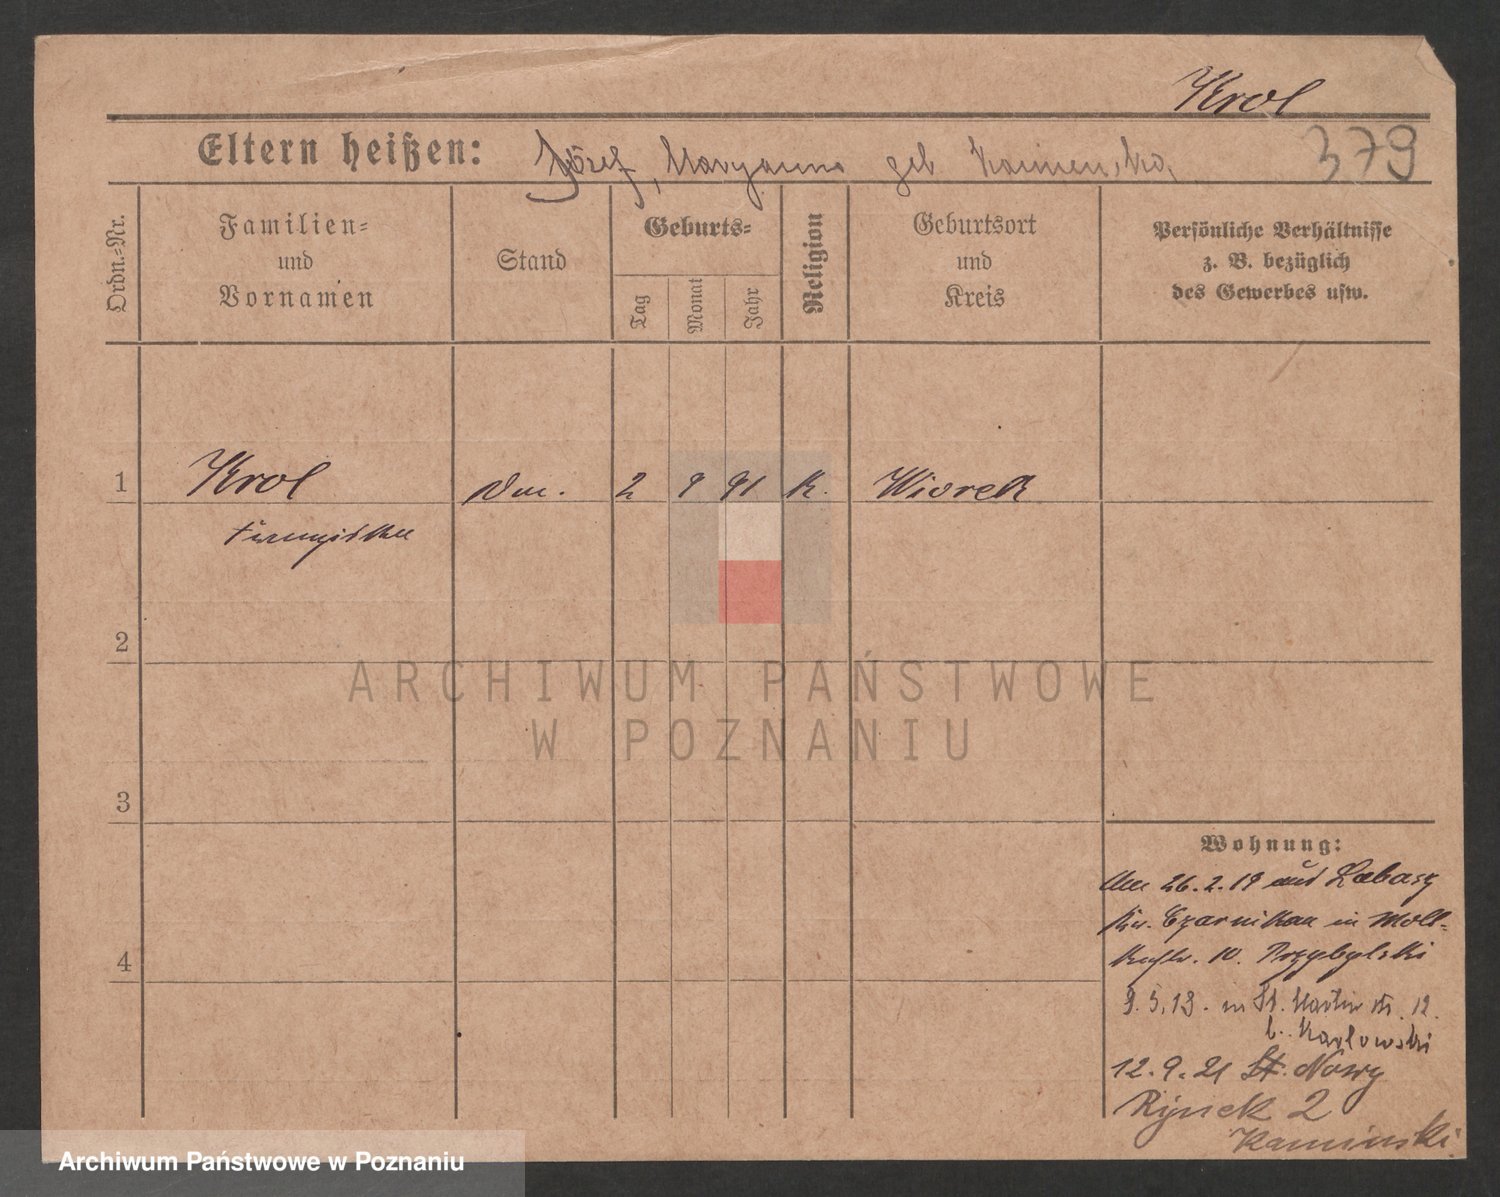 Krol
Eltern heißen: Józef, Maryanna geb Kamienska,
379
Ordn.-Nr.
Familien-
und
Vornamen
Stand
Geburts-
Tag
Monat
Jahr
Religion
Geburtsort
und
Kreis
Persönliche Verhältnisse
z. B. bezüglich
des Gewerbes usw.
1 Krol 2 9 91 K. Wiorek
Franziska
2
3
4
Wohnung:
26.2.19 aus Lubasz
Kr. Czarnikau in
10. Przybylski
in St. Martin str. 12.
b. Karlowski
12.9.21 St. Nowy
Rynek 2
Kaminski.
ARCHIWUM PAŃSTWOWE
W POZNANIU
Archiwum Państwowe w Poznaniu